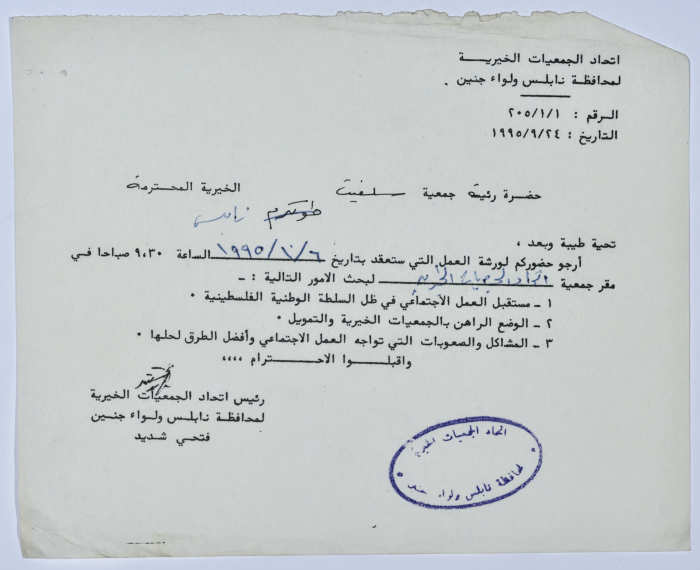 اتحاد الجمعيات الخيريــة
لمحافظـة نابلس ولواء جنين .
الـرقم : ٢٠٥/١/١
التاريخ : ١٩٩٥/٩/٢٤
حضرة رئيسة جمعية سلفيت الخيرية المحترمة
طولكرم نابلس
تحية طيبة وبعد ،
أرجو حضوركم لورشة العمل التي ستعقد بتاريخ ١٩٩٥/١٠/٦ الساعة ٩،٣٠ صباحا في
مقر جمعية اتحاد الجمعيات الخيرية لبحث الامور التالية : -
١ - مستقبل العمل الاجتماعي في ظل السلطة الوطنية الفلسطينية •
٢ - الوضع الراهن بالجمعيات الخيرية والتمويل •
٣ - المشاكل والصعوبات التي تواجه العمل الاجتماعي وأفضل الطرق لحلها •
واقبلـــوا الاحـــترام ،،،،
رئيس اتحاد الجمعيات الخيرية
لمحافظـة نابلس ولـواء جنـين
فتحي شديد
اتحاد الجمعيات الخيرية
لمحافظة نابلس ولواء جنين